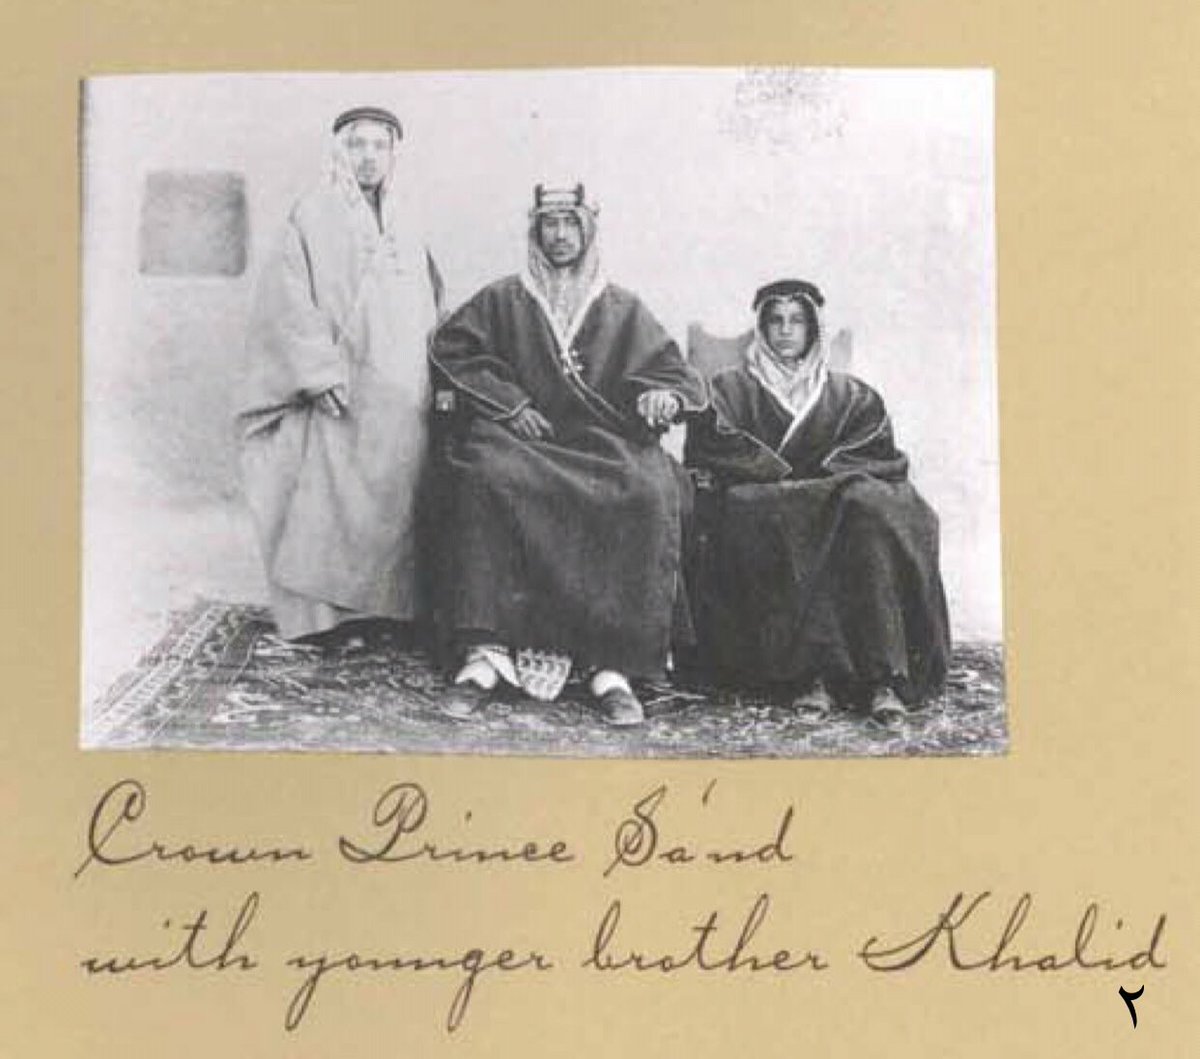 Crown Prince Sa'ud
with younger brother Khalid
٢